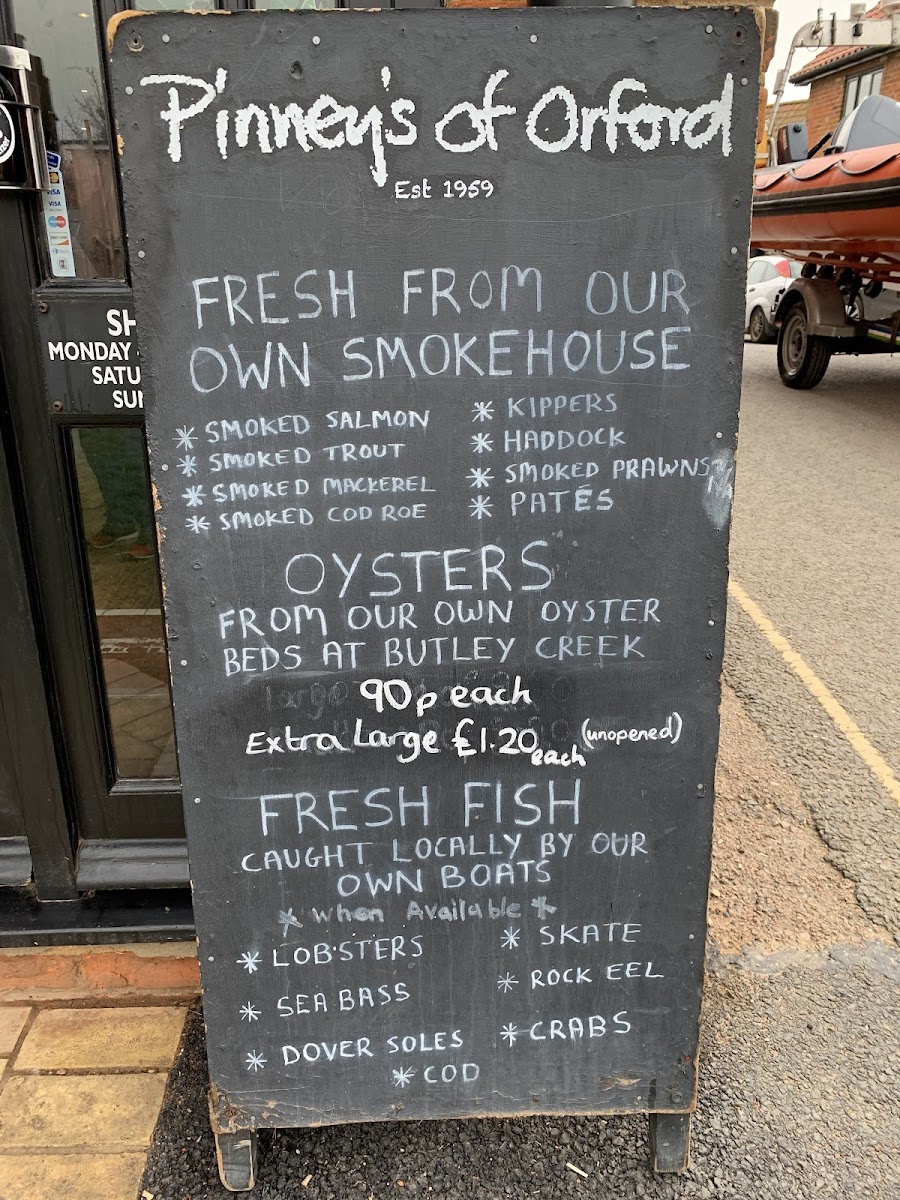 Pinney's of Orford
Est 1959
FRESH FROM OUR
OWN SMOKEHOUSE
* SMOKED SALMON
* SMOKED TROUT
* SMOKED MACKEREL
* SMOKED COD ROE
* KIPPERS
* HADDOCK
* SMOKED PRAWNS
* PATÉS
OYSTERS
FROM OUR OWN OYSTER
BEDS AT BUTLEY CREEK
90p each
Extra Large £1.20 each (unopened)
FRESH FISH
CAUGHT LOCALLY BY OUR
OWN BOATS
* When Available *
* LOBSTERS
* SKATE
* SEA BASS
* ROCK EEL
* DOVER SOLES
* CRABS
* COD
SH
MONDAY
SATU
SU
VISA
VISA